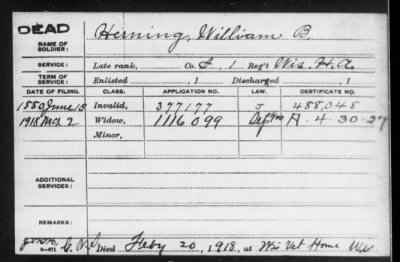 DEAD
NAME OF SOLDIER: Herning, William B.
SERVICE: Late rank, Co. I, 1 Reg't Wis. H. A.
TERM OF SERVICE: Enlisted , 1 Discharged , 1
DATE OF FILING. CLASS. APPLICATION NO. LAW. CERTIFICATE NO.
1880 June 15 Invalid, 377177 J 488,048
1918 Mch 2 Widow, 1116099 A-4-30-27
Minor,
ADDITIONAL SERVICES:
REMARKS:
Died Feby 20, 1918, at Wis Vet Home Wis